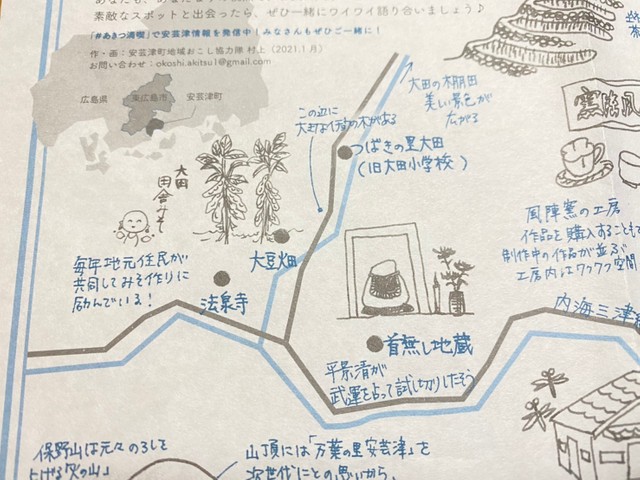 素敵なスポットと出会ったら、ぜひ一緒にワイワイ語り合いましょう♪
「#あきつ満喫」で安芸津町情報を発信中！みなさんもぜひご一緒に！
作・画：安芸津町地域おこし協力隊 村上（2021.1月）
お問い合わせ：okoshi.akitsu1@gmail.com
広島県
東広島市
安芸津町
大田の棚田
美しい景色が
広がる
この辺に
大きな
木がある
つばきの里大田
（旧大田小学校）
大田
田舎みそ
毎年地元住民が
共同してみそ作りに
励んでいる！
大豆畑
法泉寺
首無し地蔵
平景清が
武運を占って試し切りしたそう
風陣窯の工房
作品を購入することも
制作中の作品が並ぶ
工房内はワクワク空間
内海三津
保野山は元々のろしを
上げる「火の山」
山頂には「万葉の里安芸津」を
次世代にとの思いから、